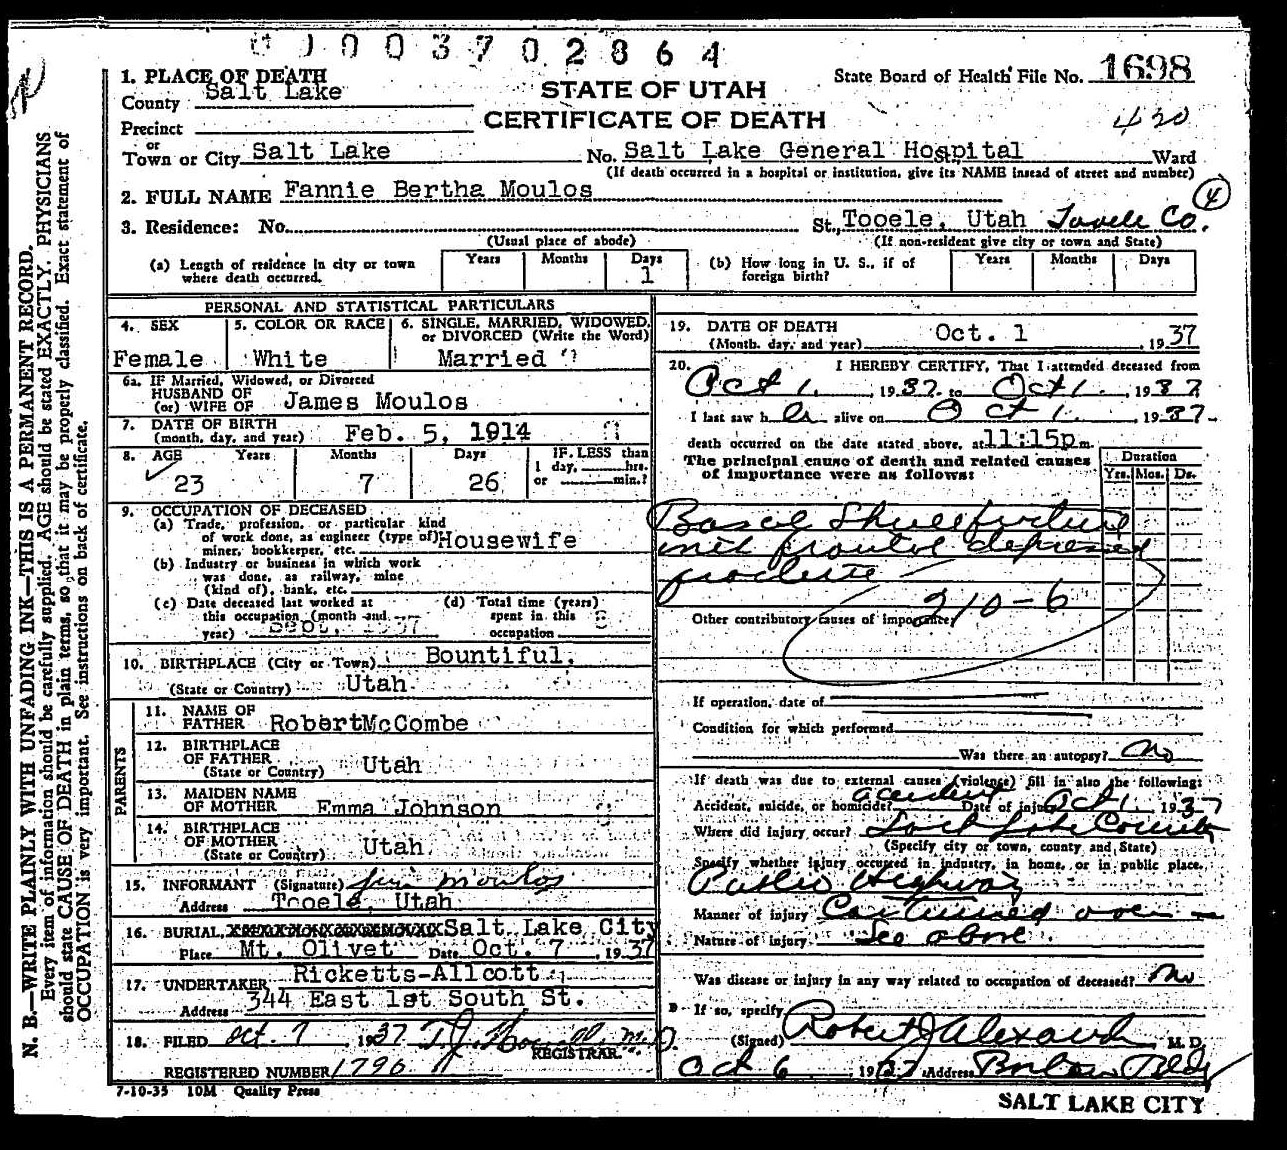 0003702864
1. PLACE OF DEATH
County Salt Lake
STATE OF UTAH
State Board of Health File No. 1698
Precinct
CERTIFICATE OF DEATH
420
or
Town or City Salt Lake No. Salt Lake General Hospital St. Ward
(If death occurred in a hospital or institution, give its NAME instead of street and number)
2. FULL NAME Fannie Bertha Moulos
4
3. Residence: No. St., Tooele, Utah Tooele Co.
(Usual place of abode) (If non-resident give city or town and State)
(a) Length of residence in city or town where death occurred. Years Months Days 1
(b) How long in U. S., if of foreign birth? Years Months Days
PERSONAL AND STATISTICAL PARTICULARS
4. SEX Female
5. COLOR OR RACE White
6. SINGLE, MARRIED, WIDOWED, or DIVORCED (Write the Word) Married
6a. IF Married, Widowed, or Divorced
HUSBAND OF
(or) WIFE OF James Moulos
7. DATE OF BIRTH
(month, day, and year) Feb. 5, 1914
8. AGE Years Months Days IF LESS than
1 day, hrs.
or min.?
23 7 26
9. OCCUPATION OF DECEASED
(a) Trade, profession, or particular kind
of work done, as engineer (type of) Housewife
miner, bookkeeper, etc.
(b) Industry or business in which work
was done, as railway, mine
(kind of), bank, etc.
(c) Date deceased last worked at
this occupation (month and
year) Sept. 1937
(d) Total time (years)
spent in this
occupation
10. BIRTHPLACE (City or Town) Bountiful,
(State or Country) Utah
PARENTS
11. NAME OF
FATHER Robert McCombe
12. BIRTHPLACE
OF FATHER
(State or Country) Utah
13. MAIDEN NAME
OF MOTHER Emma Johnson
14. BIRTHPLACE
OF MOTHER
(State or Country) Utah
15. INFORMANT (Signature) Jim Moulos
Address Tooele, Utah
16. BURIAL, Salt Lake City
Place Mt. Olivet Date Oct. 7, 1937
17. UNDERTAKER Ricketts-Allcott
Address 344 East 1st South St.
18. FILED Oct. 7 1937 T. J. M.D.
REGISTRAR.
REGISTERED NUMBER 1796
7-10-35 10M Quality Press
19. DATE OF DEATH
(Month, day, and year) Oct. 1, 1937
20. I HEREBY CERTIFY, That I attended deceased from
Oct 1, 1937 to Oct 1, 1937
I last saw her alive on Oct 1, 1937
death occurred on the date stated above, at 11:15p m.
The principal cause of death and related causes
of importance were as follows:
Duration
Yrs. Mos. Ds.
Basal Skull fracture
with frontal depressed
fracture
210-6
Other contributory causes of importance:
If operation, date of
Condition for which performed
Was there an autopsy? No
If death was due to external causes (violence) fill in also the following:
Accident, suicide, or homicide? accident Date of injury Oct 1 1937
Where did injury occur? Salt Lake County
(Specify city or town, county and State)
Specify whether injury occurred in industry, in home, or in public place.
Public Highway
Manner of injury Car turned over
Nature of injury See above.
Was disease or injury in any way related to occupation of deceased? No
If so, specify
(Signed) Robert J Alexander M. D.
Oct 6, 1937 Address Boston Bldg
SALT LAKE CITY
N. B.—WRITE PLAINLY WITH UNFADING INK—THIS IS A PERMANENT RECORD.
Every item of information should be carefully supplied. AGE should be stated EXACTLY. PHYSICIANS
should state CAUSE OF DEATH in plain terms, so that it may be properly classified. Exact statement of
OCCUPATION is very important. See instructions on back of certificate.